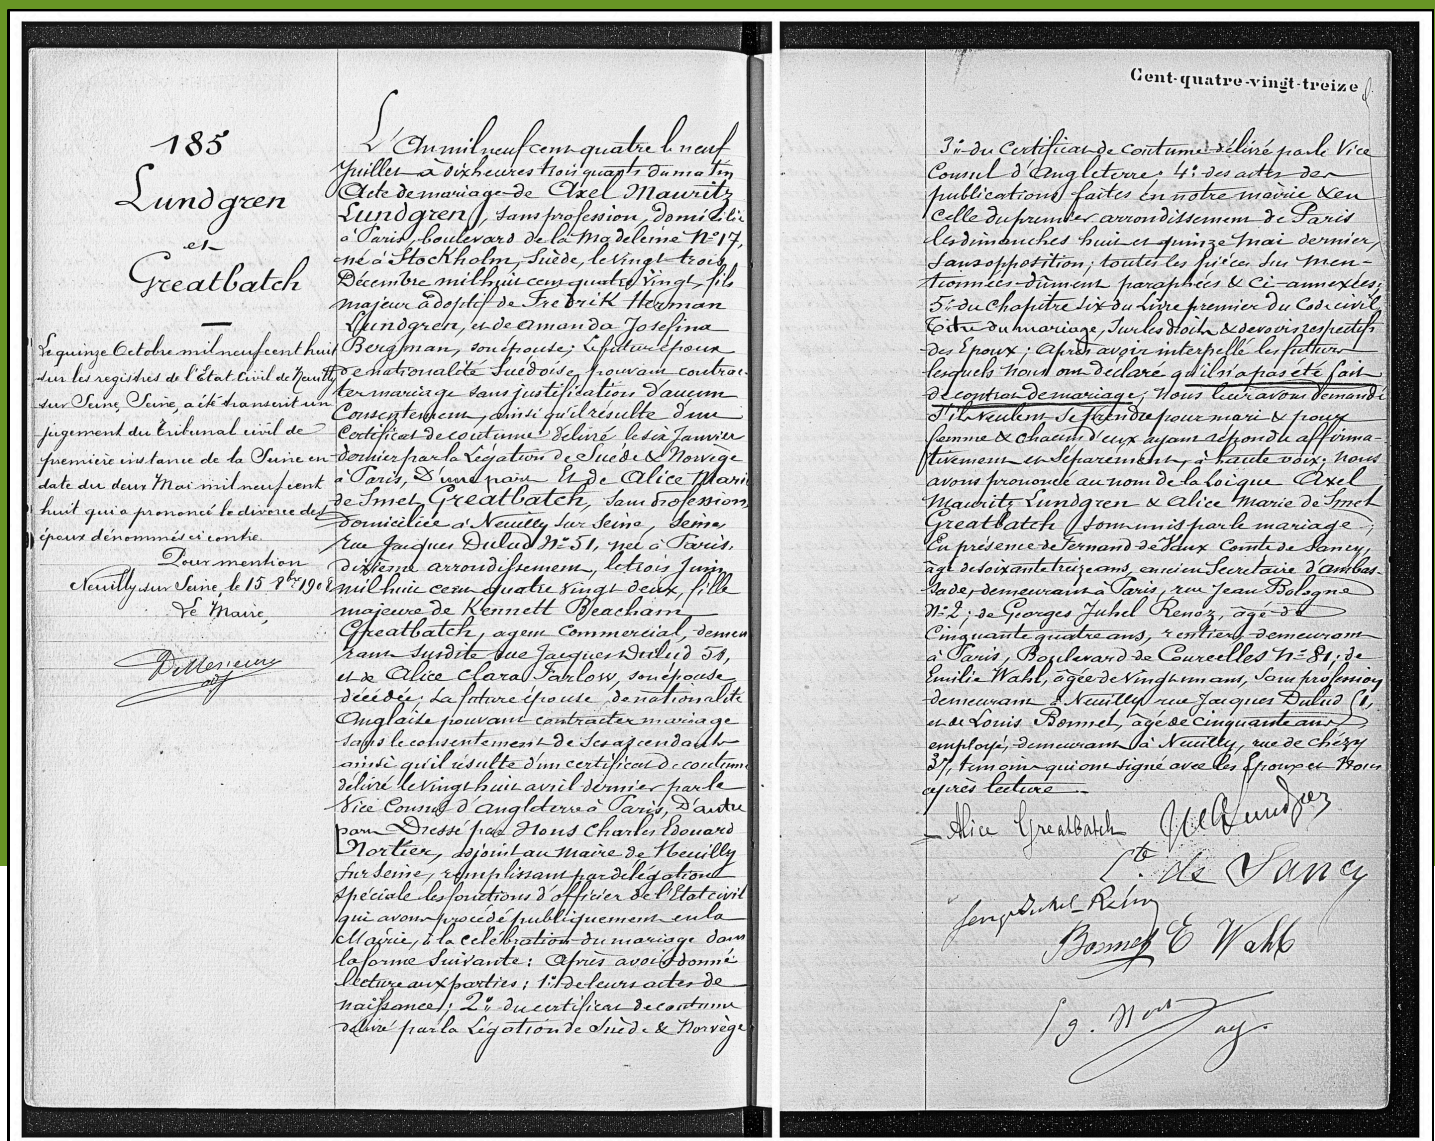 185
Lundgren
et
Greatbatch
Le quinze Octobre mil neuf cent huit
sur les registres de l'Etat Civil de Neuilly
sur Seine, Seine, a été transcrit un
jugement du Tribunal civil de
première instance de la Seine en
date du deux Mai mil neuf cent
huit qui a prononcé le divorce des
époux dénommés ci contre
Pour mention
Neuilly sur Seine, le 15 8bre 1908
Le Maire,
adj
L'An mil neuf cent quatre le neuf
Juillet à dix heures trois quarts du matin
Acte de mariage de Axel Mauritz
Lundgren, sans profession, domicilié
à Paris, boulevard de la Madeleine No 17,
né à Stockholm, Suède, le vingt trois
Décembre mil huit cent quatre vingt, fils
majeur adoptif de Fredrik Herman
Lundgren, et de Amanda Josefina
Bergman, son épouse; Le futur époux
de nationalité Suédoise, pouvant contrac-
ter mariage sans justification d'aucun
Consentement, ainsi qu'il résulte d'un
Certificat de coutume délivré le six Janvier
dernier par la Légation de Suède & Norvège
à Paris, D'une part Et de Alice Marie
de Smet Greatbatch, sans profession,
domiciliée à Neuilly sur Seine, Seine,
rue Jacques Dulud No 51, née à Paris,
dixième arrondissement, le trois Juin
mil huit cent quatre vingt deux, fille
majeure de Kennett Beacham
Greatbatch, agent Commercial, demeu
rant susdite rue Jacques Dulud 51,
et de Alice Clara Farlow, son épouse
décédée; La future épouse, de nationalité
Anglaise pouvant contracter mariage
sans le consentement de ses ascendants
ainsi qu'il résulte d'un certificat de coutume
délivré le vingt huit avril dernier par le
Vice Consul d'Angleterre à Paris, D'autre
part Dressé par Nous Charles Edouard
Nortier, adjoint au Maire de Neuilly
sur Seine, remplissant par délégation
spéciale les fonctions d'officier de l'Etat civil
qui avons procédé publiquement en la
Mairie, à la célébration du mariage dans
la forme suivante: Après avoir donné
lecture aux parties; 1o de leurs actes de
naissance; 2o du certificat de coutume
délivré par la Légation de Suède & Norvège
Cent-quatre-vingt-treize
3o du Certificat de coutume délivré par le Vice
Consul d'Angleterre; 4o des actes des
publications faites en notre mairie & en
celle du premier arrondissement de Paris
les dimanches huit et quinze Mai dernier,
sans opposition; toutes les pièces sus men-
tionnées dûment paraphées & ci-annexées;
5o du chapitre six du Livre premier du Code civil
Titre du mariage, sur les droits & devoirs respectifs
des Epoux; Après avoir interpellé les futurs
lesquels nous ont déclaré qu'il n'a pas été fait
de contrat de mariage; Nous leur avons demandé
s'ils veulent se prendre pour mari & pour
femme & chacun d'eux ayant répondu affirma-
tivement et séparément, à haute voix; nous
avons prononcé au nom de la loi que Axel
Mauritz Lundgren & Alice Marie de Smet
Greatbatch sont unis par le mariage;
En présence de Fernand de Vaux Comte de Sancy,
âgé de soixante treize ans, ancien Secrétaire d'ambas-
sade, demeurant à Paris, rue Jean Bologne
No 2; de Georges Juhel Renoz, âgé de
Cinquante quatre ans, rentier, demeurant
à Paris, Boulevard de Courcelles No 81; de
Emilie Wahl, âgée de vingt un ans, sans profession
demeurant à Neuilly rue Jacques Dulud 51,
et de Louis Bonnet, âgé de cinquante ans
employé, demeurant à Neuilly, rue de Chézy
37, témoins qui ont signé avec les Epoux et Nous
après lecture
Alice Greatbatch
Cte de Sancy
Bonnet E Wahl
adj.